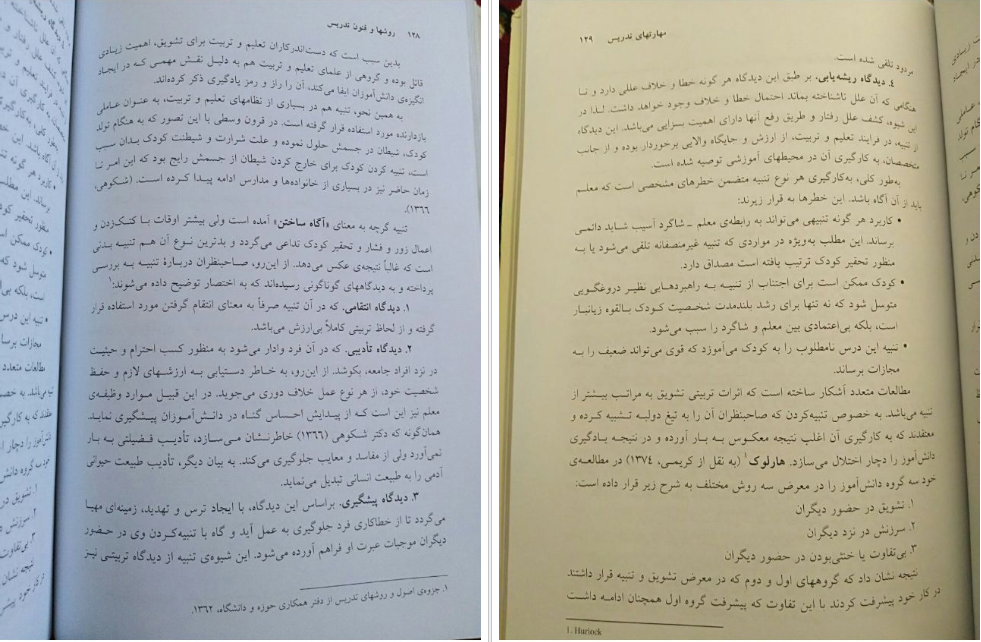 ۱۲۸ روشها و فنون تدریس
بدین سبب است که دست‌اندرکاران تعلیم و تربیت برای تشویق، اهمیت زیادی
قائل بوده و گروهی از علمای تعلیم و تربیت هم به دلیل نقش مهمی که در ایجاد
انگیزه‌ی دانش‌آموزان ایفا می‌کند، آن را راز و رمز یادگیری ذکر کرده‌اند.
به همین نحو، تنبیه هم در بسیاری از نظامهای تعلیم و تربیت، به عنوان عاملی
بازدارنده مورد استفاده قرار گرفته است. در قرون وسطی با این تصور که به هنگام تولد
کودک، شیطان در جسمش حلول نموده و علت شرارت و شیطنت کودک بدان سبب
است، تنبیه کردن کودک برای خارج کردن شیطان از جسمش رایج بود که این امر تا
زمان حاضر نیز در بسیاری از خانواده‌ها و مدارس ادامه پیدا کرده است. (شکوهی،
۱۳۶۶).
تنبیه گرچه به معنای «آگاه ساختن» آمده است ولی بیشتر اوقات با کتک‌زدن و
اعمال زور و فشار و تحقیر کودک تداعی می‌گردد و بدترین نوع آن هم تنبیه بدنی
است که غالباً نتیجه‌ی عکس می‌دهد. از این‌رو، صاحبنظران دربارهٔ تنبیه به بررسی
پرداخته و به دیدگاههای گوناگونی رسیده‌اند که به اختصار توضیح داده می‌شوند:¹
۱. دیدگاه انتقامی. که در آن تنبیه صرفاً به معنای انتقام گرفتن مورد استفاده قرار
گرفته و از لحاظ تربیتی کاملاً بی‌ارزش می‌باشد.
۲. دیدگاه تأدیبی. که در آن فرد وادار می‌شود به منظور کسب احترام و حیثیت
در نزد افراد جامعه، بکوشد. از این‌رو، به خاطر دستیابی به ارزشهای لازم و حفظ
شخصیت خود، از هر نوع عمل خلاف دوری می‌جوید. در این قبیل موارد وظیفه‌ی
معلم نیز این است که از پیدایش احساس گناه در دانش‌آموزان پیشگیری نماید.
همان‌گونه که دکتر شکوهی (۱۳۶۶) خاطرنشان می‌سازد، تأدیب فضیلتی به بار
نمی‌آورد ولی از مفاسد و معایب جلوگیری می‌کند. به بیان دیگر، تأدیب طبیعت حیوانی
آدمی را به طبیعت انسانی تبدیل می‌نماید.
۳. دیدگاه پیشگیری. براساس این دیدگاه، با ایجاد ترس و تهدید، زمینه‌ای مهیا
می‌گردد تا از خطاکاری فرد جلوگیری به عمل آید و گاه با تنبیه‌کردن وی در حضور
دیگران موجبات عبرت او فراهم آورده می‌شود. این شیوه‌ی تنبیه از دیدگاه تربیتی نیز
۱. جزوه‌ی اصول و روشهای تدریس از دفتر همکاری حوزه و دانشگاه، ۱۳۶۲.
مهارتهای تدریس ۱۲۹
مردود تلقی شده است.
٤. دیدگاه ریشه‌یابی. بر طبق این دیدگاه هر گونه خطا و خلاف عللی دارد و تا
هنگامی که آن علل ناشناخته بماند احتمال خطا و خلاف وجود خواهد داشت. لـذا در
این شیوه، کشف علل رفتار و طریق رفع آنها دارای اهمیت بسزایی می‌باشد. این دیدگاه،
از تنبیه، در فرایند تعلیم و تربیت، از ارزش و جایگاه والایی برخوردار بوده و از جانب
متخصصان، به کارگیری آن در محیطهای آموزشی توصیه شده است.
به‌طور کلی، به‌کارگیری هر نوع تنبیه متضمن خطرهای مشخصی است که معلم
باید از آن آگاه باشد. این خطرها به قرار زیرند:
• کاربرد هر گونه تنبیهی می‌تواند به رابطه‌ی معلم ـ شاگرد آسیب شاید دائمی
برساند. این مطلب به‌ویژه در مواردی که تنبیه غیرمنصفانه تلقی می‌شود یا به
منظور تحقیر کودک ترتیب یافته است مصداق دارد.
• کودک ممکن است برای اجتناب از تنبیه به راهبردهایی نظیر دروغگویی
متوسل شود که نه تنها برای رشد بلندمدت شخصیت کودک بالقوه زیانبار
است، بلکه بی‌اعتمادی بین معلم و شاگرد را سبب می‌شود.
• تنبیه این درس نامطلوب را به کودک می‌آموزد که قوی می‌تواند ضعیف را به
مجازات برساند.
مطالعات متعدد آشکار ساخته است که اثرات تربیتی تشویق به مراتب بیشتر از
تنبیه می‌باشد. به خصوص تنبیه‌کردن که صاحبنظران آن را به تیغ دولبه تشبیه کرده و
معتقدند که به کارگیری آن اغلب نتیجه معکوس به بار آورده و در نتیجه یادگیری
دانش‌آموز را دچار اختلال می‌سازد. هارلوک¹ (به نقل از کریمی، ۱۳۷٤) در مطالعه‌ی
خود سه گروه دانش‌آموز را در معرض سه روش مختلف به شرح زیر قرار داده است:
۱. تشویق در حضور دیگران
۲. سرزنش در نزد دیگران
۳. بی‌تفاوت یا خنثی‌بودن در حضور دیگران
نتیجه نشان داد که گروههای اول و دوم که در معرض تشویق و تنبیه قرار داشتند
در کار خود پیشرفت کردند با این تفاوت که پیشرفت گروه اول همچنان ادامه داشت
1. Hurlock